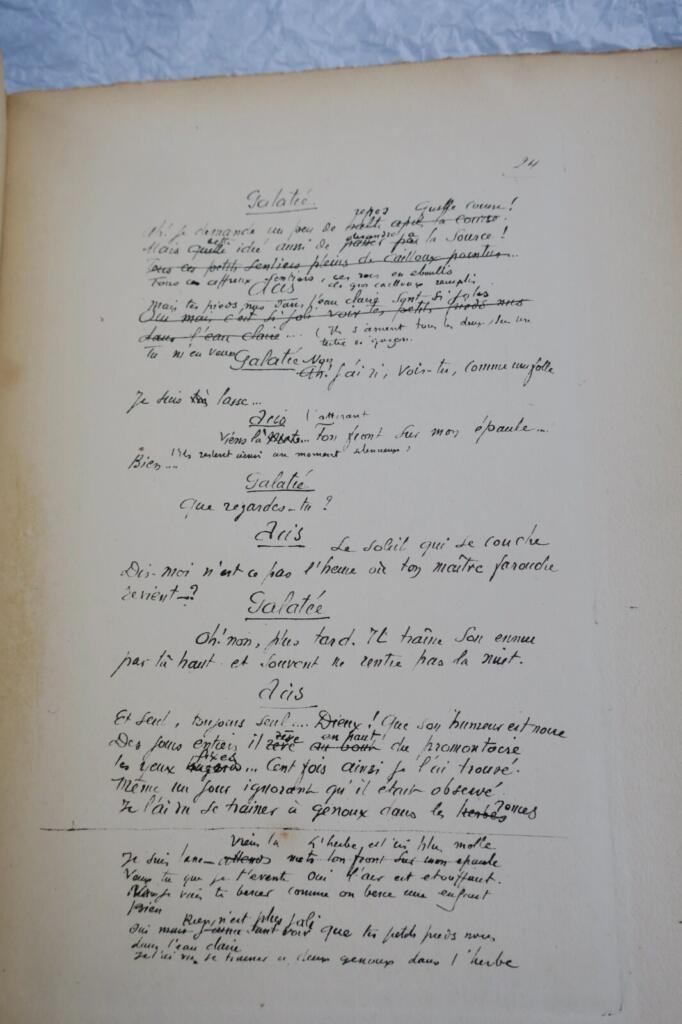 24
Galatée.
repos Quelle course!
Ah! je demande un peu de halte après la course.
Mais quelle idée aussi de passer par la Source!
Tous ces petits sentiers pleins de cailloux pointus...
Tous ces affreux sentiers, ces rocs en éboulis
Acis de gros cailloux remplis
Mais tes pieds nus dans l'eau claire sont si jolis
Oui mais c'est si joli voir tes petits pieds nus
dans l'eau claire... (Ils s'aiment tous les deux sur un
tertre de gazon.
Tu m'en veux
Galatée Non
Ah! j'ai ri, vois-tu, comme une folle
Je suis lasse...
Acis l'attirant
Viens là ... Ton front sur mon épaule...
Bien... (Ils restent ainsi un moment silencieux)
Galatée
Que regardes-tu?
Acis
Le soleil qui se couche
Dis-moi n'est ce pas l'heure où ton maître farouche
revient-?
Galatée
Oh! non, plus tard. Il traîne son ennui
par là haut et souvent ne rentre pas la nuit.
Acis
Et seul, toujours seul.... Dieux! Que son humeur est noire
rêve en haut
Des jours entiers il rêve au bout du promontoire
fixes
les yeux ... Cent fois ainsi je l'ai trouvé.
Même un jour ignorant qu'il était observé
Je l'ai vu se traîner à genoux dans les herbes ronces
Viens là L'herbe est ici plus molle
Je suis lasse - mets ton front sur mon épaule
Veux tu que je t'évente oui l'air est étouffant.
je vais te bercer comme on berce une enfant
bien
Rien n'est plus joli
Oui mais que tes petits pieds nus
dans l'eau claire
Je l'ai vu se trainer à deux genoux dans l'herbe